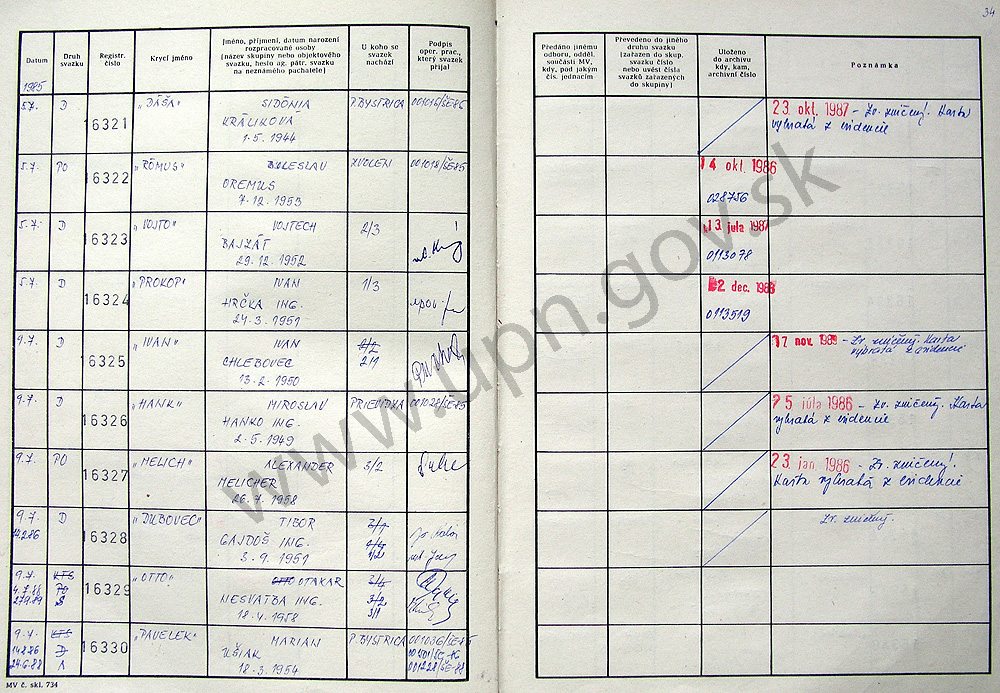 34
Datum
Druh svazku
Registr. číslo
Krycí jméno
Jméno, příjmení, datum narození
rozpracované osoby
(název skupiny nebo objektového
svazku, heslo ag. pátr. svazku
na neznámého pachatele)
U koho se
svazek
nachází
Podpis
oper. prac.,
který svazek
přijal
Předáno jinému
odboru, odděl.
součásti MV,
kdy, pod jakým
čís. jednacím
Převedeno do jiného
druhu svazku
(zařazen do skup.
svazku číslo
nebo uvést čísla
svazků zařazených
do skupiny)
Uloženo
do archivu
kdy, kam,
archivní číslo
Poznámka
1985
5.7. D 16321 "DÁŠA" SIDÓNIA P. BYSTRICA 001016/ŠE-86 23. okt. 1987 - Zv. zničený! Karta
KRÁLIKOVÁ vybratá z evidencie
1.5.1944
5.7. PO 16322 "RÓMUS" BOLESLAV ZVOLEN 001018/ŠE85 14 okt. 1986
OREMUS 028756
7.12.1953
5.7. D 16323 "VOJTO" VOJTECH 2/3 13. júla 1987
BAJZÁT 0113078
29.12.1952
5.7. D 16324 "PROKOP" IVAN 1/3 2 dec. 1988
HRČKA ING. 0113519
24.3.1951
9.7. D 16325 "IVAN" IVAN 2/2 17 nov. 1989 - Zv. zničený. Karta
CHLEBOVEC 2/1 vybratá z evidencie
13.2.1950
9.7. D 16326 "HANK" MIROSLAV PRIEVIDZA 001028/ŠE-85 25 júla 1986 - Zv. zničený. Karta
HANKO ING. vybratá z evidencie
2.5.1949
9.7. PO 16327 "MELICH" ALEXANDER 3/2 23. jan. 1986 - Zv. zničený!
MELICHER Karta vybratá z evidencie
26.7.1958
9.7. D 16328 "DUBOVEC" TIBOR Zv. zničený.
14.2.86 GAJDOŠ ING.
3.9.1951
9.7. KTS 16329 "OTTO" OTTO OTAKAR
4.7.88 PO NESVATBA ING. 3/2
27.9.89 S 18.4.1958 3/1
9.7. KTS 16330 "PAVELEK" MARIAN P. BYSTRICA 001036/ŠE-85
14.8.86 D UŠIAK
24.6.88 A 18.3.1954 001228/ŠE-88
MV č. skl. 734
www.upn.gov.sk